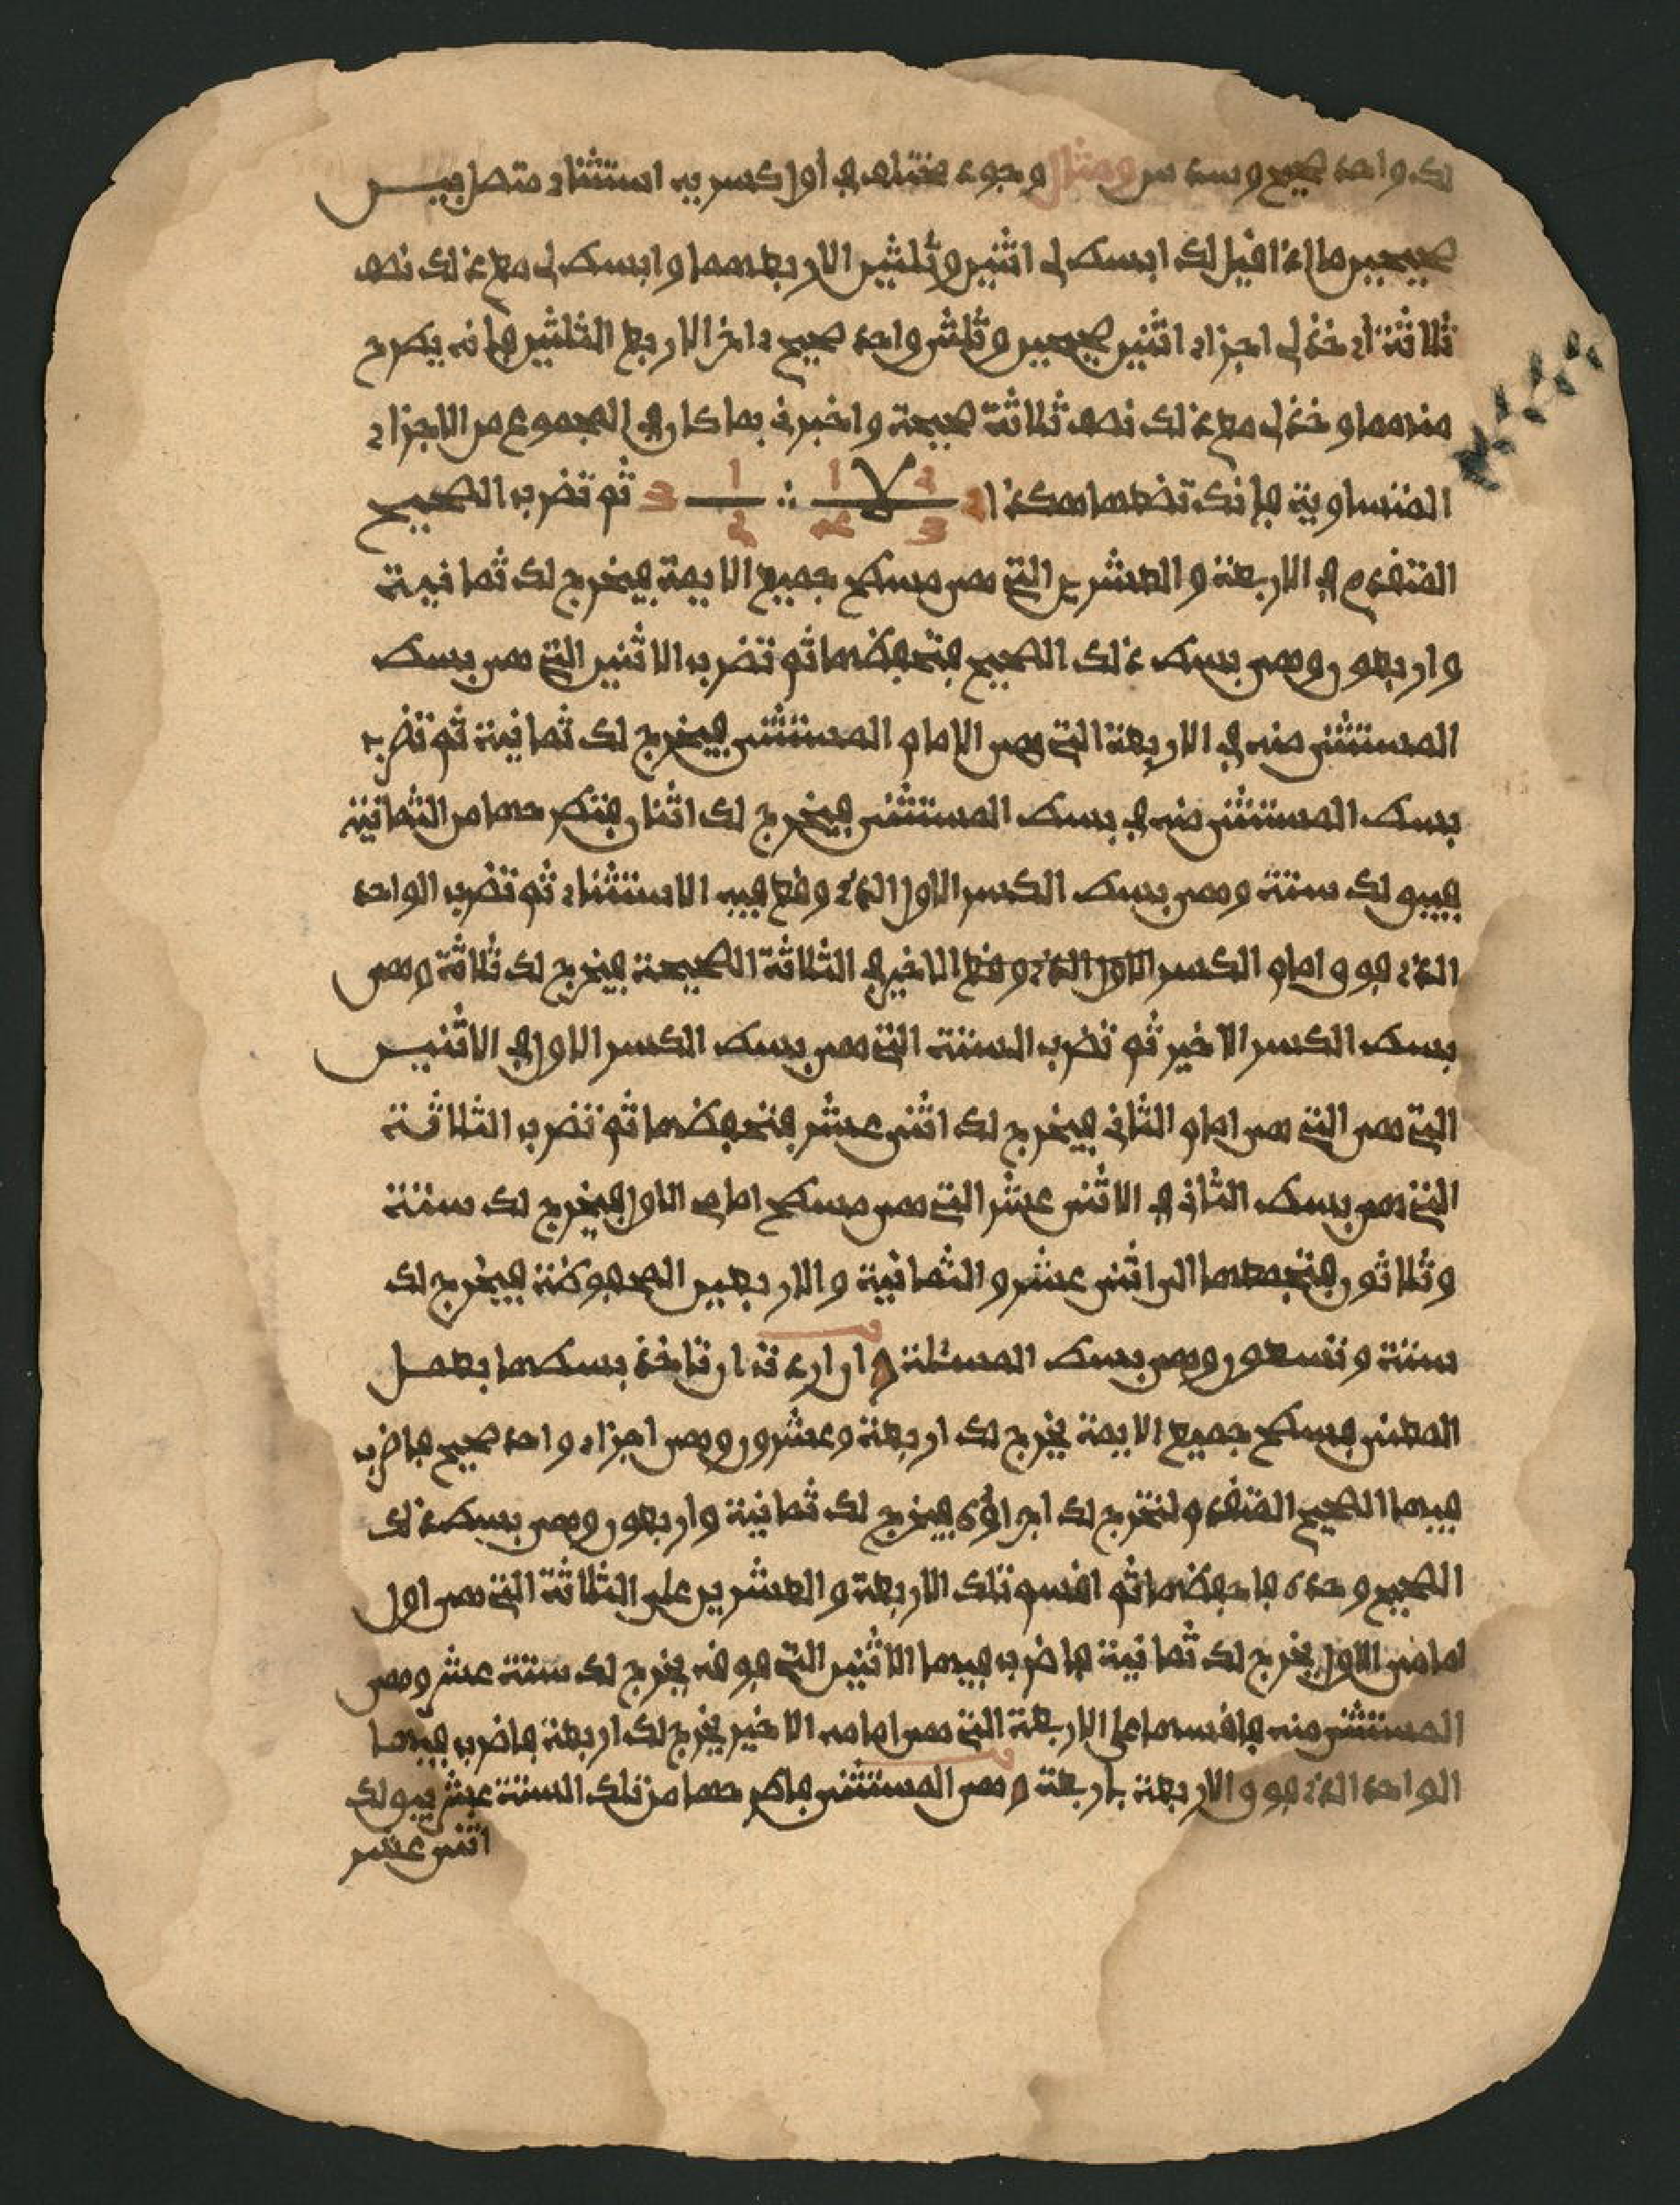 لك واحد صحيح وسدس ومثال وجود مختلف في أول كسر به استثناء متصل بين
صحيحين ما إذا قيل لك ابسط لي اثنين وثلثين إلا ربعهما وابسط لي مع ذلك نصف
ثلاثة أي خذ لي أجزاء اثنين صحيحين وثلثي واحد صحيح إلا ربع الثلثين فإنه يطرح
منهما وخذ لي مع ذلك نصف ثلاثة صحيحة واخبرني بما كان في المجموع من الأجزاء
المتساوية فإنك تضعهما هكذا 2 2 لا 1 ∴ 1 3 ثم تضرب الصحيح
3 4 2
المتقدم في الأربعة والعشرين التي هي مسطح جميع الأيمة فيخرج لك ثمانية
وأربعون وهي بسط ذلك الصحيح فتحفظها ثم تضرب الاثنين التي هي بسط
المستثنى منه في الأربعة التي هي الإمام المستثنى فيخرج لك ثمانية ثم تضرب
بسط المستثنى منه في بسط المستثنى فيخرج لك اثنان فتطرحهما من الثمانية
فيبقى لك ستة وهي بسط الكسر الأول الذي وقع فيه الاستثناء ثم تضرب الواحد
الذي فوق إمام الكسر الأول الذي وقع الأخير في الثلاثة الصحيحة فيخرج لك ثلاثة وهي
بسط الكسر الأخير ثم تضرب الستة التي هي بسط الكسر الأول في الاثنين
التي هي التي هي إمام الثاني فيخرج لك اثني عشر فتحفظها ثم تضرب الثلاثة
التي هي بسط الثاني في الاثني عشر التي هي مسطح إمام الأول فيخرج لك ستة
وثلاثون فتجمعها إلى اثني عشر والثمانية والأربعين المحفوظة فيخرج لك
ستة وتسعون وهي بسط المسئلة وإن أردت أن تأخذ بسطها بعمل
المعنى فسطح جميع الأيمة يخرج لك أربعة وعشرون وهي أجزاء واحد صحيح فاضرب
فيها الصحيح المتقدم لتخرج لك أجزاؤه فيخرج لك ثمانية وأربعون وهي بسط ذلك
الصحيح وحده فاحفظها ثم اقسم تلك الأربعة والعشرين على الثلاثة التي هي أول
إمامي الأول يخرج لك ثمانية فاضرب فيها الاثنين التي فوقه يخرج لك ستة عشر وهي
المستثنى منه فاقسمها على الأربعة التي هي إمامه الأخير يخرج لك أربعة فاضرب فيها
الواحد الذي فوق الأربعة بأربعة وهي المستثنى فاطرحها من تلك الستة عشر يبق لك
اثني عشر